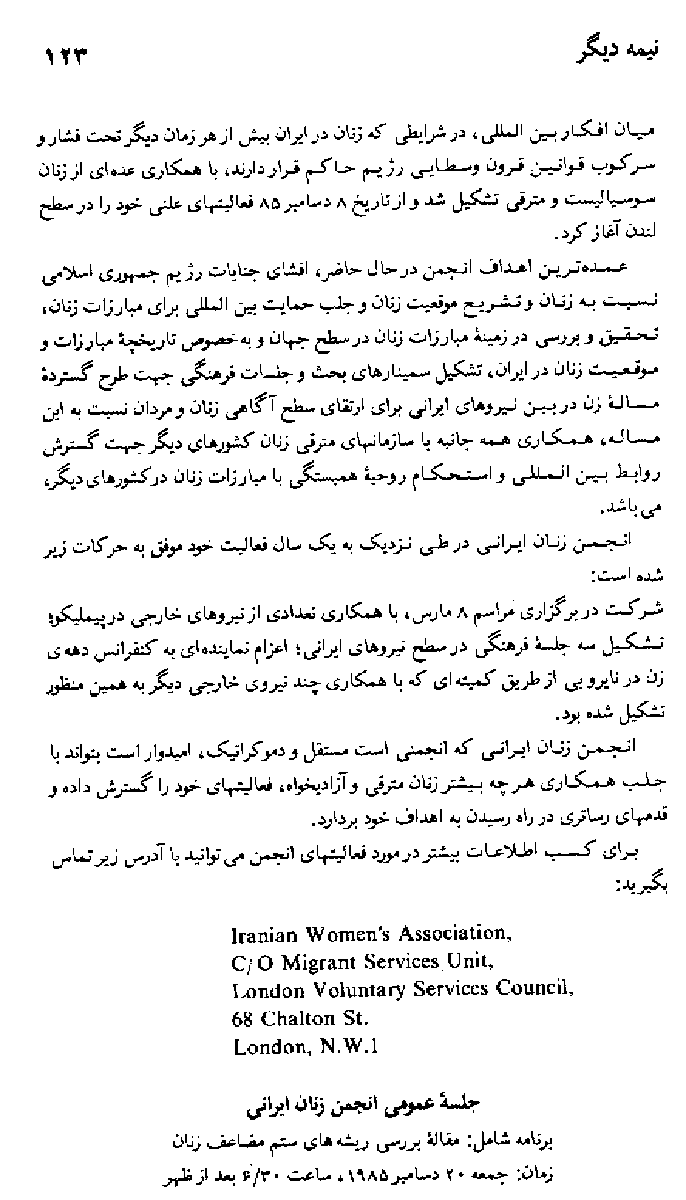 نیمه دیگر
۱۲۳
میان افکار بین المللی، در شرایطی که زنان در ایران بیش از هر زمان دیگر تحت فشار و
سرکوب قوانین قرون وسطایی رژیم حاکم قرار دارند، با همکاری عده‌ای از زنان
سوسیالیست و مترقی تشکیل شد و از تاریخ ۸ دسامبر ۸۵ فعالیتهای علنی خود را در سطح
لندن آغاز کرد.
عمده‌ترین اهداف انجمن در حال حاضر، افشای جنایات رژیم جمهوری اسلامی
نسبت به زنان و تشریح موقعیت زنان و جلب حمایت بین المللی برای مبارزات زنان،
تحقیق و بررسی در زمینهٔ مبارزات زنان در سطح جهان و به خصوص تاریخچهٔ مبارزات و
موقعیت زنان در ایران، تشکیل سمینارهای بحث و جلسات فرهنگی جهت طرح گستردهٔ
مسالهٔ زن در بین نیروهای ایرانی برای ارتقای سطح آگاهی زنان و مردان نسبت به این
مساله، همکاری همه جانبه با سازمانهای مترقی زنان کشورهای دیگر جهت گسترش
روابط بین المللی و استحکام روحیهٔ همبستگی با مبارزات زنان در کشورهای دیگر،
می باشد.
انجمن زنان ایرانی در طی نزدیک به یک سال فعالیت خود موفق به حرکات زیر
شده است:
شرکت در برگزاری مراسم ۸ مارس، با همکاری تعدادی از نیروهای خارجی در پیملیکو؛
تشکیل سه جلسهٔ فرهنگی در سطح نیروهای ایرانی؛ اعزام نماینده‌ای به کنفرانس دهه‌ی
زن در نایروبی از طریق کمیته‌ای که با همکاری چند نیروی خارجی دیگر به همین منظور
تشکیل شده بود.
انجمن زنان ایرانی که انجمنی است مستقل و دموکراتیک، امیدوار است بتواند با
جلب همکاری هر چه بیشتر زنان مترقی و آزادیخواه، فعالیتهای خود را گسترش داده و
قدمهای رساتری در راه رسیدن به اهداف خود بردارد.
برای کسب اطلاعات بیشتر در مورد فعالیتهای انجمن می توانید با آدرس زیر تماس
بگیرید:
Iranian Women's Association,
C/O Migrant Services Unit,
London Voluntary Services Council,
68 Chalton St.
London, N.W.1
جلسهٔ عمومی انجمن زنان ایرانی
برنامه شامل: مقالهٔ بررسی ریشه های ستم مضاعف زنان
زمان: جمعه ۲۰ دسامبر ۱۹۸۵، ساعت ۶/۳۰ بعد از ظهر